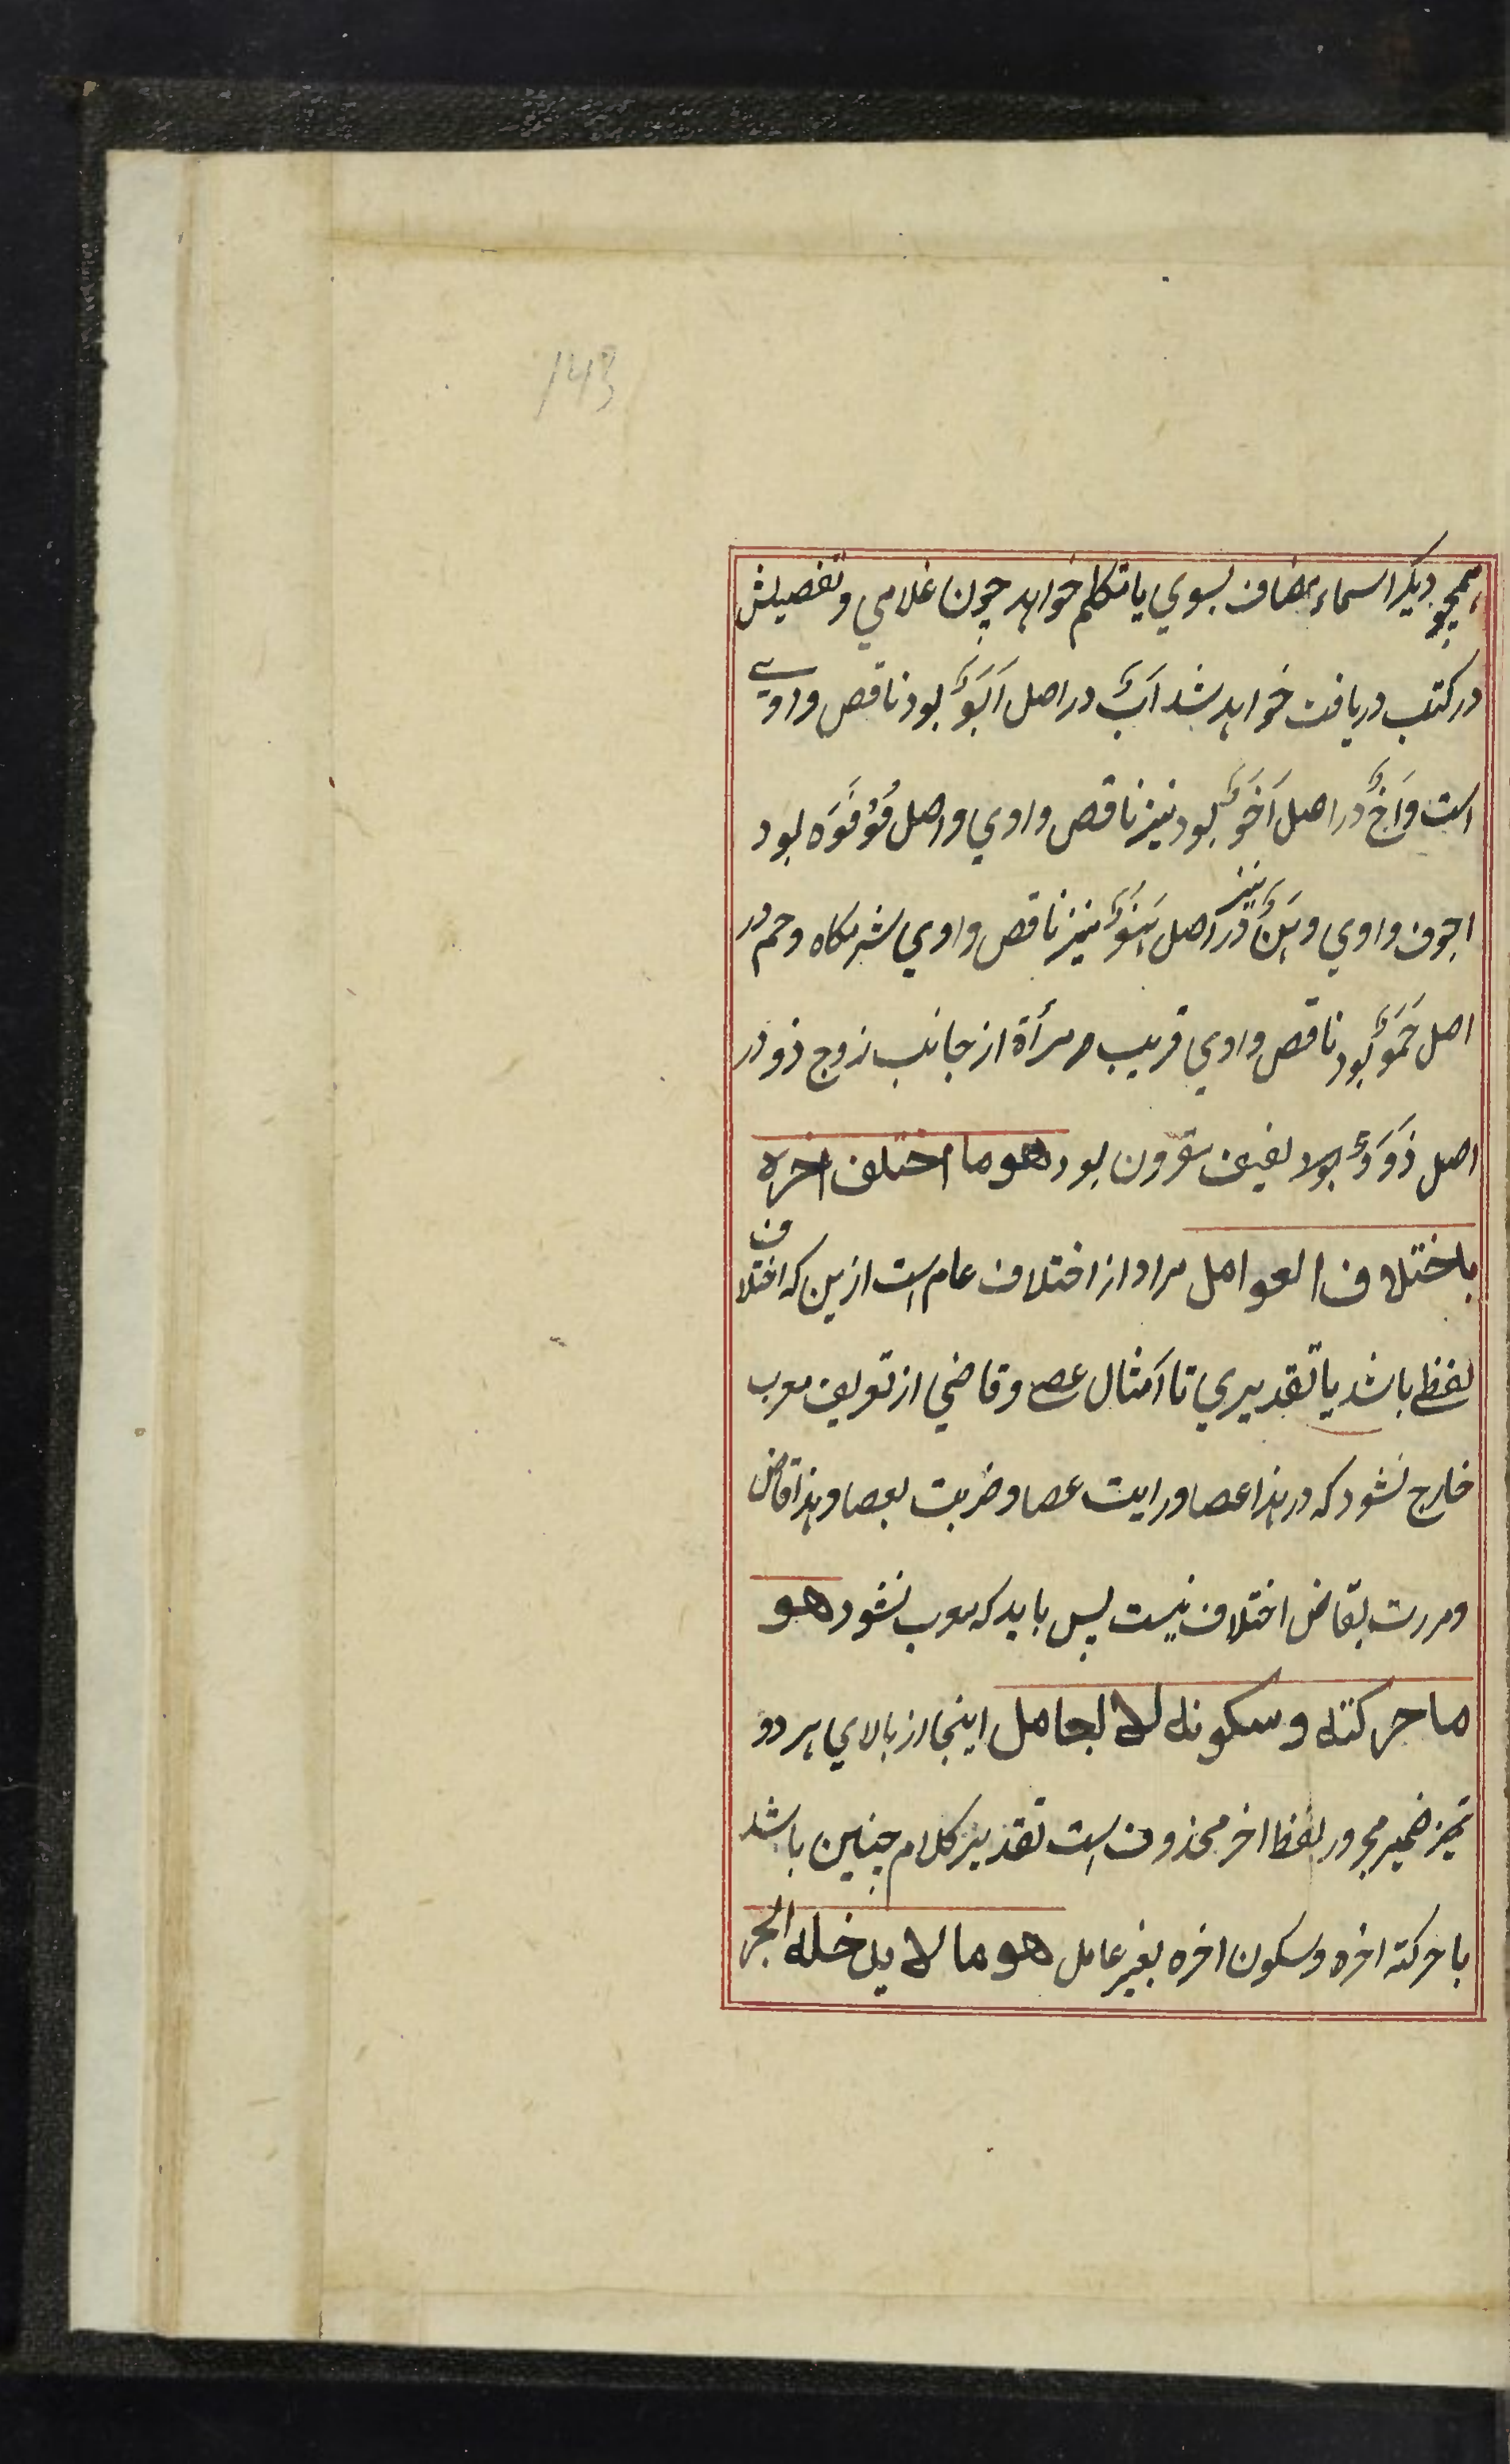 143
همچو دیکر اسماء مضاف بسوي یا تکلم خواهد چون غلامي و تفصیلش
در کتب دریافت خواهد شد اَبٌ در اصل اَبَوٌ بود ناقص واوی
است و اَخٌ در اصل اَخَوٌ بود نیز ناقص واوي و اصل فو فَوَه بود
اجوف واوي و هَنٌ نیز در اصل هَنَوٌ نیز ناقص واوي شرمکاه و حم در
اصل حَمَوٌ بود ناقص واوي قریب مرأة از جانب زوج ذو در
اصل ذَوَوٌ بود لفیف مقرون بود هو ما اختلف اخره
باختلاف العوامل مراد از اختلاف عام است ازین که اختلاف
لفظے باشد یا تقدیري تا اَمثال عصے و قاضي از تعریف معرب
خارج نشود که در هذا عصا و رایت عصا و ضربت بعصا و هذا قاض
و مررت بقاض اختلاف نیست پس باید که معرب نشود هو
ما حرکته و سکونه لا لعامل اینجا از بالاي هر دو
تمیز ضمیر مجرور لفظ اخر محذوف است تقدیر کلام چنین باشد
ما حرکة اخره و سکون اخره بغیر عامل هو ما لا یدخله الجر